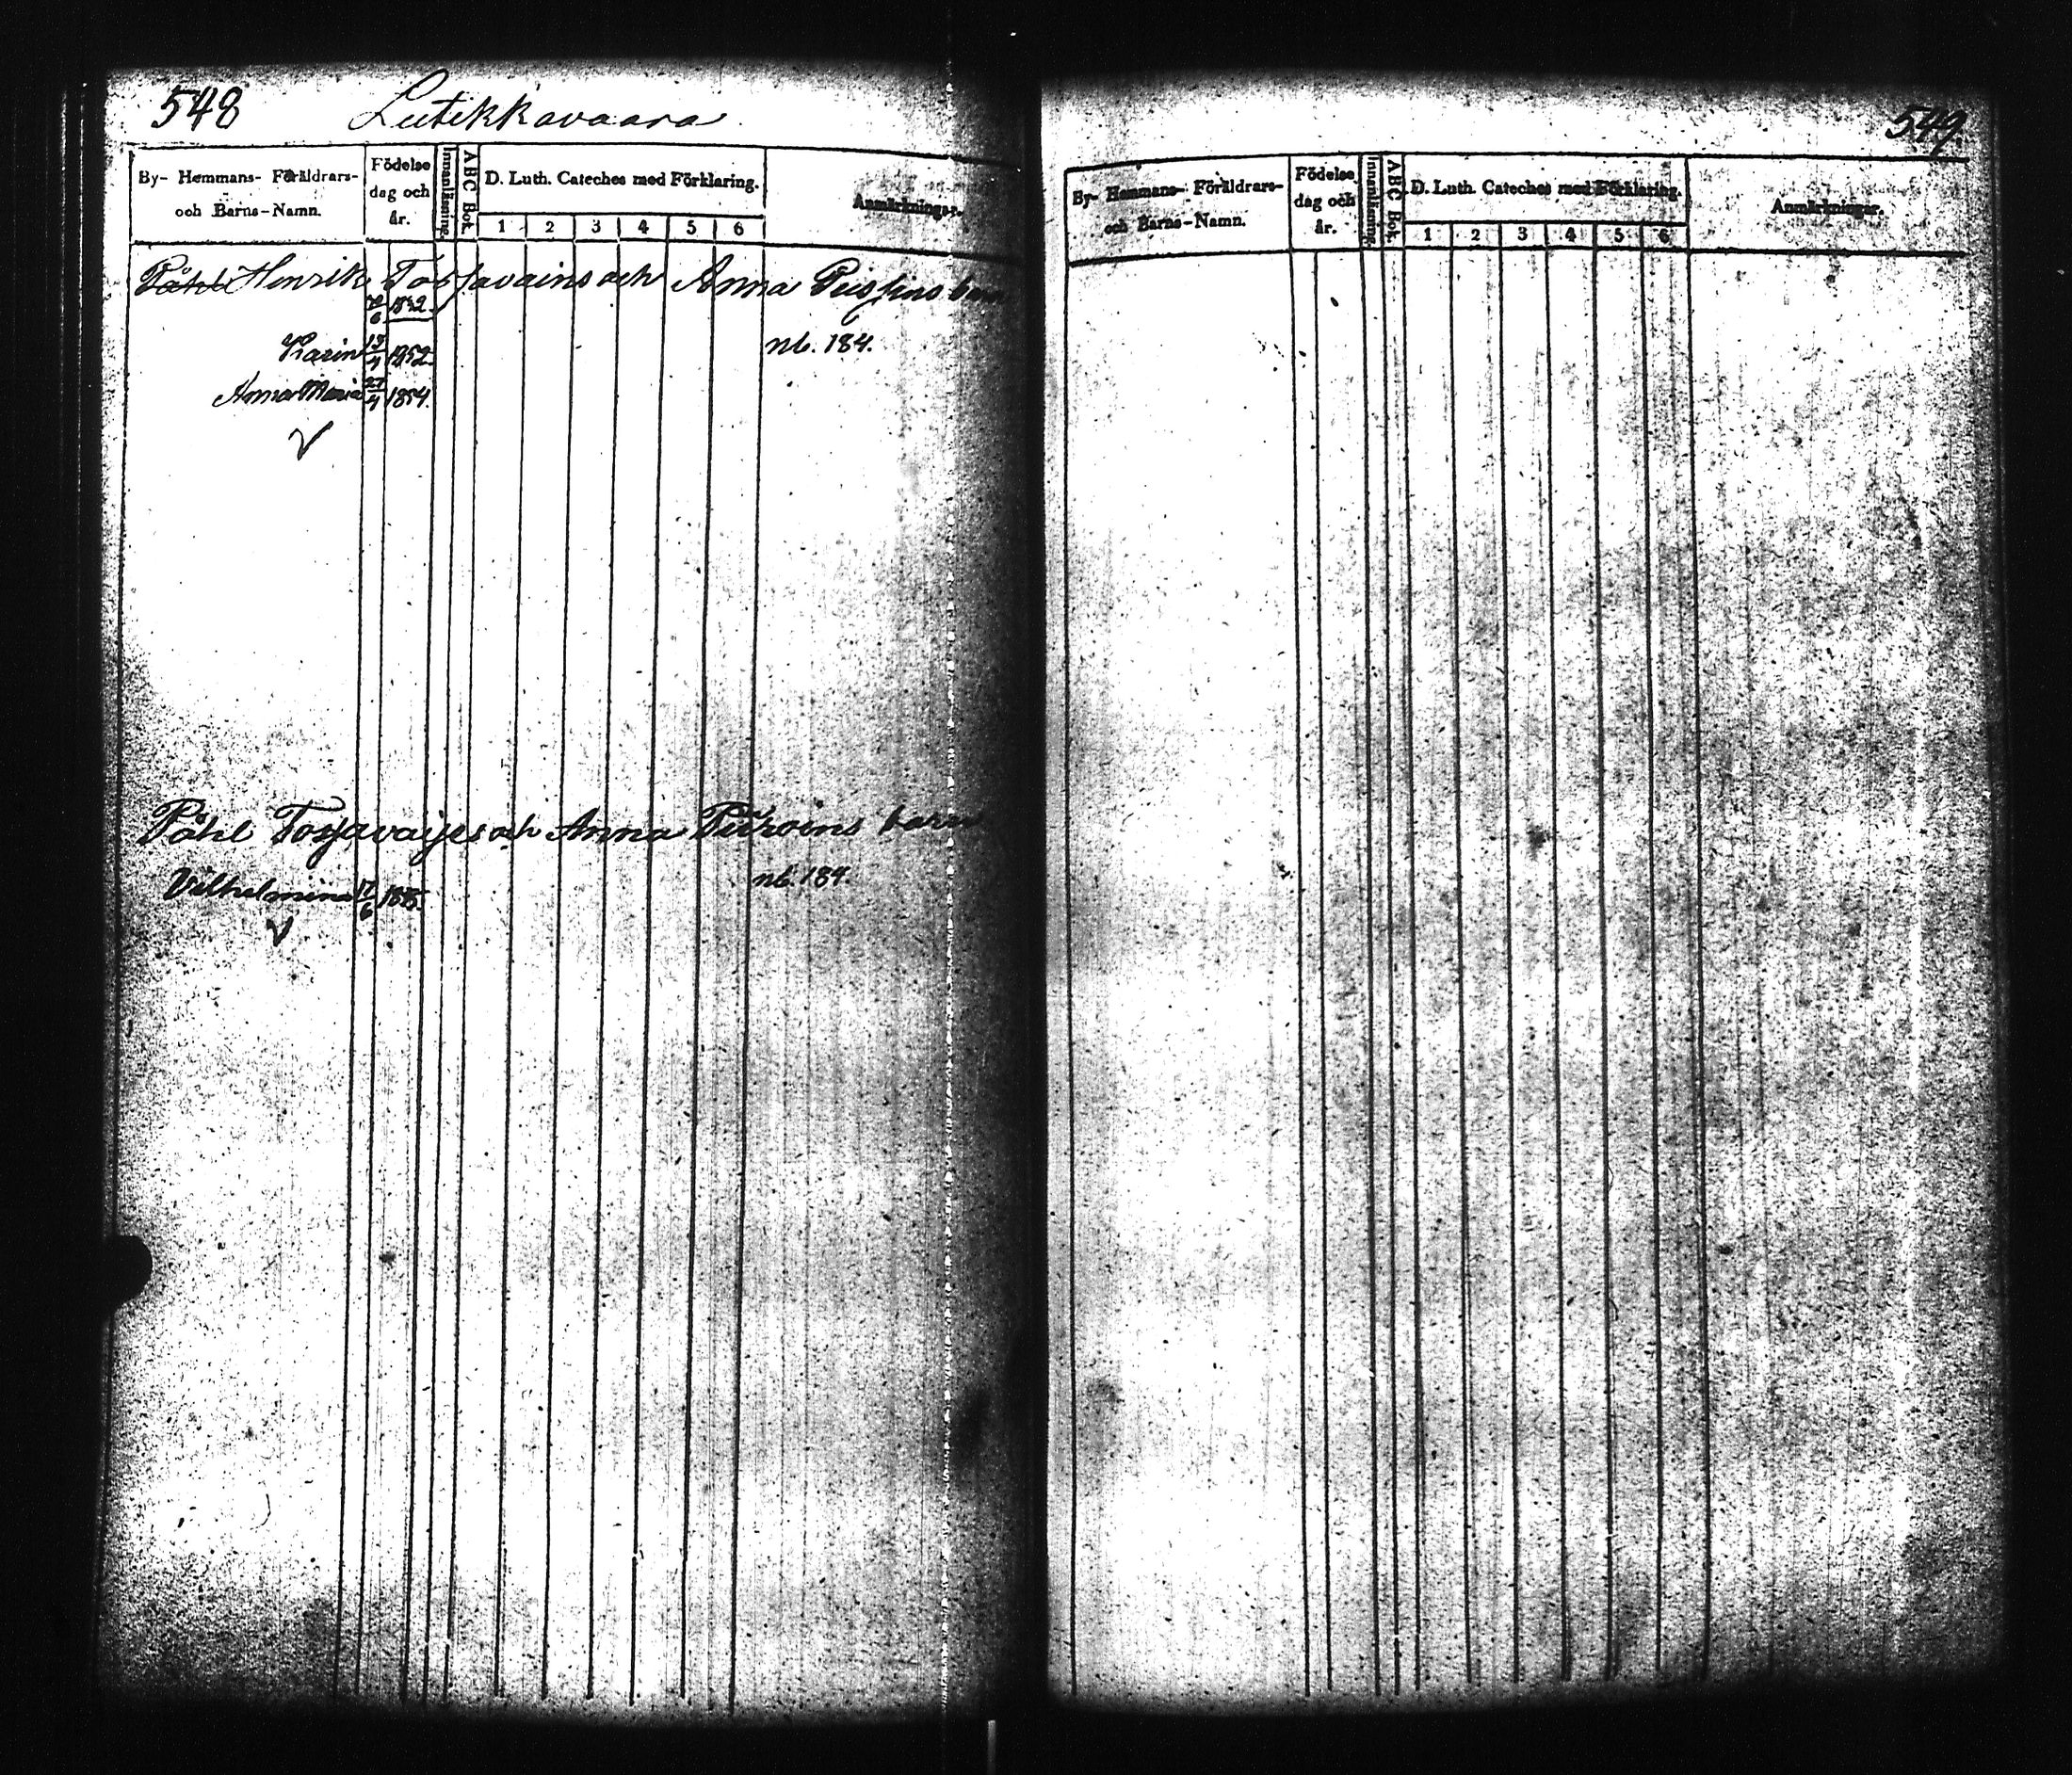 548 Lutikkavaara
By- Hemmans- Föräldrars- och Barns-Namn.
Födelse dag och år.
Innanläsning.
ABC Bok.
D. Luth. Cateches med Förklaring.
1 2 3 4 5 6
Anmärkningar.
Påhl Henrik Tossavains och Anna barn
6 1832.
Karin 13/4 1852 nb. 184.
Anna Maria 27/4 1854.
Påhl och Anna barn
nb. 184.
Vilhelmina 6
549
By- Hemmans- Föräldrars- och Barns-Namn.
Födelse dag och år.
Innanläsning.
ABC Bok.
D. Luth. Cateches med Förklaring.
1 2 3 4 5 6
Anmärkningar.